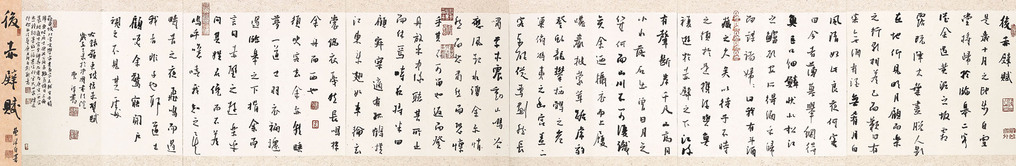 後赤壁賦
是歲十月之望步自雪
堂將歸於臨皋二客
從予過黃泥之坂霜
露既降木葉盡脫人影
在地仰見明月顧而樂
之行歌相答已而歎曰有
客無酒有酒無肴月白
風清如此良夜何客
曰今者薄暮舉網得
魚巨口細鱗狀似松江
之鱸顧安所得酒乎歸
而謀諸婦婦曰我有斗酒
藏之久矣以待子不時
之須於是攜酒與魚
復遊於赤壁之下江流
有聲斷岸千尺山高月
小水落石出曾日月之
幾何而江山不可復識
矣余乃攝衣而上履
巉巖披蒙茸踞虎豹
登虬龍攀栖鶻之危
巢俯馮夷之幽宮蓋二
客不能從焉劃然長
嘯草木震動山鳴谷
應風起水湧余亦悄
然而悲肅然而恐凜
乎其不可留也反而登
舟放乎中流聽其所止
而休焉時夜將半四
顧寂寥適有孤鶴橫
江東來翅如車輪玄
裳縞衣戛然長鳴掠
余舟而西也
須臾客去余亦就睡
夢一道士羽衣翩僊
過臨皋之下揖余而
言曰赤壁之遊樂乎
問其姓名俛而不答
嗚呼噫嘻我知之矣
疇昔之夜飛鳴而過
我者非子也耶道士
顧笑余亦驚悟開戶
視之不見其處
後赤壁賦